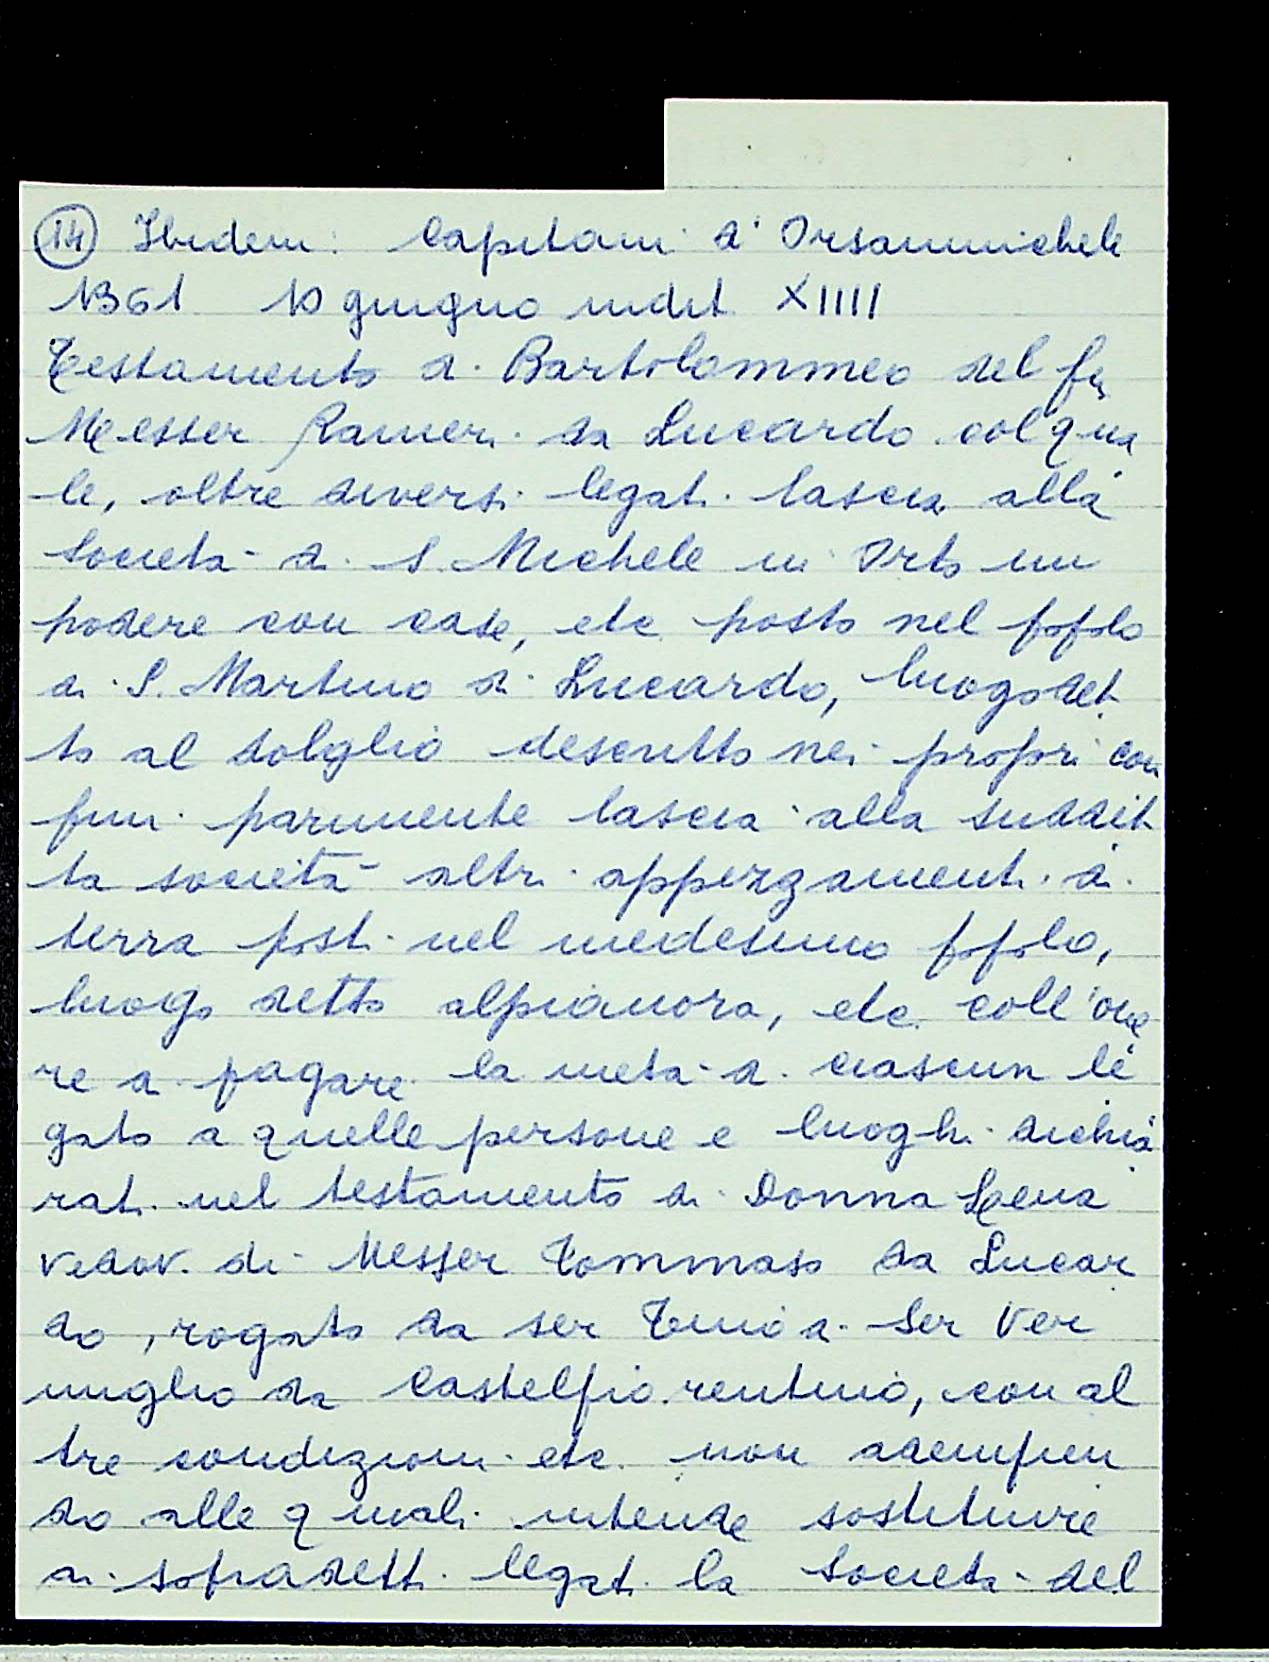 14 Ibidem: Capitani d'Orsanmichele
1361 10 giugno indit XIIII
Testamento di Bartolommeo del fu
Messer Ranieri da Lucardo col qua
le, oltre diversi legati lascia alla
Società di S. Michele in Orto un
podere con case, etc posto nel popolo
di S. Martino di Lucardo, luogo det
to al solglio descritto nei propri con
fini parimente lascia alla suddit
ta società altri appezzamenti di
terra posti nel medesimo popolo,
luogo detto alpianora, etc. coll'one
re di pagare la metà di ciascun le
gato a quelle persone e luoghi dichia
rati nel testamento di Donna Lena
vedov. di Messer Tommaso da Lucar
do, rogato da ser Tinio di Ser Ver
miglio da Castelfiorentino, con al
tre condizioni etc. non adempien
do alle quali intende sostituire
ai sopradetti legati la Società del